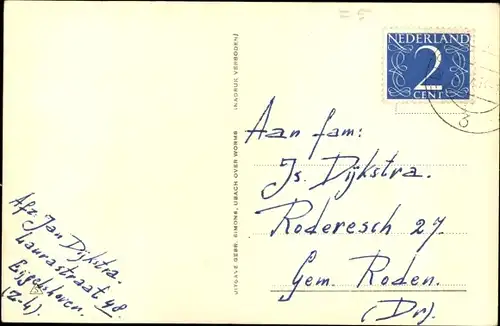 NEDERLAND
2
CENT
3
Aan fam:
Js. Dijkstra.
Roderesch 27.
Gem. Roden.
(Dr).
UITGAVE GEBR. SIMONS, UBACH OVER WORMS (NADRUK VERBODEN)
Afz. Jan Dijkstra.
Laurastraat 48.
Eijgelshoven.
(Z-L).